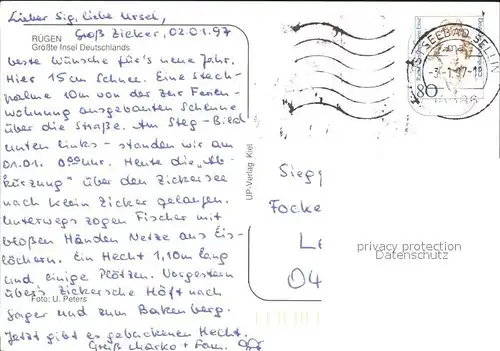 Lieber Sig, liebe Ursel,
Groß Zicker, 02.01.97
RÜGEN
Größte Insel Deutschlands
beste Wünsche für's neue Jahr.
Hier 15cm Schnee. Eine Stech-
palme 10m von der zur Ferien-
wohnung ausgebauten Scheune
über die Straße. Am Steg - Bild
unten links - standen wir am
01.01. 0⁰⁰ Uhr. Heute die „Ab-
kürzung" über den Zickersee
nach Klein Zicker gelaufen.
Unterwegs zogen Fischer mit
bloßen Händen Netze aus Eis-
löchern. Ein Hecht 1,10m lang
und einige Plötzen. Vorgestern
über's Zickersche Höft nach
Foto: U. Peters
Gager und zum Bakenberg.
Jetzt gibt es gebackenen Hecht.
Gruß Marko + Fam.
UP-Verlag Kiel
OSTSEEBAD SELLIN
-3.-1.97-18
80
Siegf
Focke
Le
04
privacy protection
Datenschutz